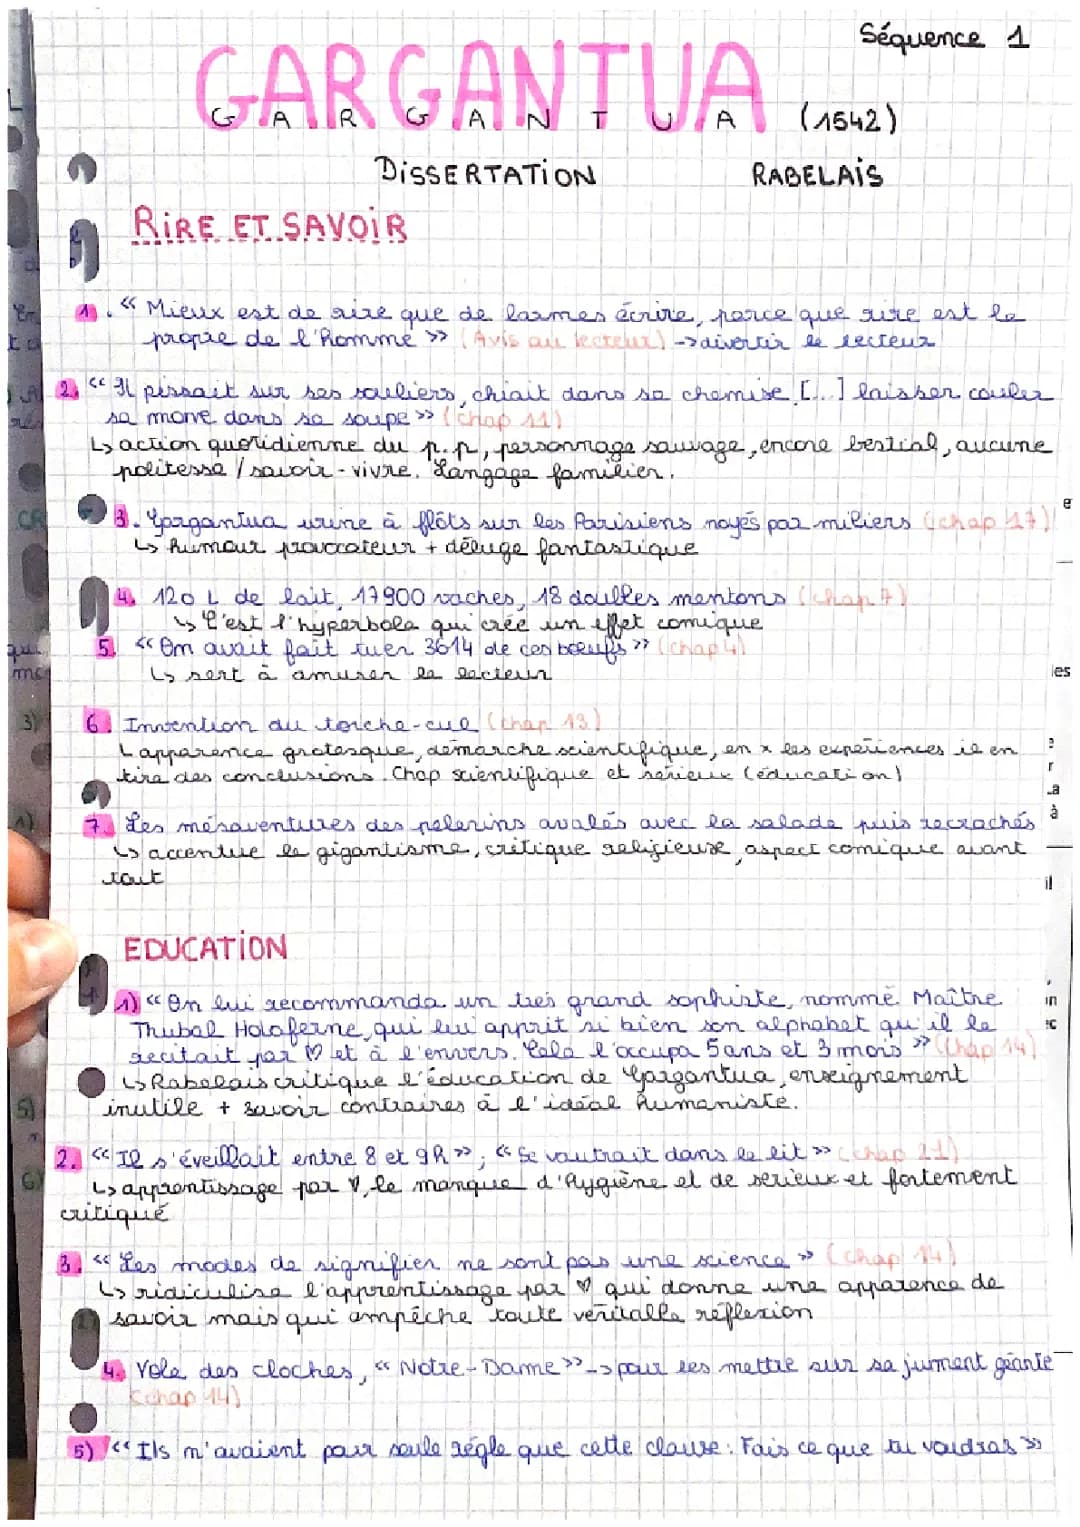 Séquence 1
GARGANTUA
G A R G A N T U A (1542)
DISSERTATION RABELAIS
RIRE ET SAVOIR
1. « Mieux est de rire que de larmes écrire, parce que rire est le
propre de l'homme » (Avis au lecteur) -> divertir le lecteur
2. « Il pissait sur ses souliers, chiait dans sa chemise [...] laisser couler
sa morve dans sa soupe » (chap 11)
↳ action quotidienne du p.p, personnage sauvage, encore bestial, aucune
politesse / savoir-vivre. Langage familier.
3. Gargantua urine à flôts sur les Parisiens noyés par miliers (chap 17)
↳ humour provocateur + déluge fantastique
4. 120 L de lait, 17900 vaches, 18 doubles mentons (chap 7)
↳ C'est l'hyperbole qui créé un effet comique
5. « On avait fait tuer 3614 de ces boeufs » (chap 4)
↳ sert à amuser le lecteur
6. Invention du torche-cul (chap 13)
↳ apparence grotesque, démarche scientifique, en x les expériences il en
tire des conclusions. Chap scientifique et sérieux (éducation)
7. Les mésaventures des pelerins avalés avec la salade puis recrachés
↳ accentue le gigantisme, critique religieuse, aspect comique avant
tout
EDUCATION
1) « On lui recommanda un très grand sophiste, nommé Maître
Thubal Holoferne, qui lui apprit si bien son alphabet qu'il le
recitait par ♡ et à l'envers. Cela l'occupa 5 ans et 3 mois » (chap 14)
↳ Rabelais critique l'éducation de Gargantua, enseignement
inutile + savoir contraires à l'idéal humaniste.
2. « Il s'éveillait entre 8 et 9h » ; « Se vautrait dans le lit » (chap 21)
↳ apprentissage par ♡, le manque d'hygiène et de serieux et fortement
critiqué
3. « Les modes de signifier ne sont pas une science » (chap 14)
↳ ridiculise l'apprentissage par ♡ qui donne une apparence de
savoir mais qui empêche toute véritable réflexion
4. Vole des cloches, « Notre-Dame » -> pour les mettre sur sa jument géante
(chap 14)
5) « Ils n'avaient pour seule règle que cette clause : Fais ce que tu voudras »